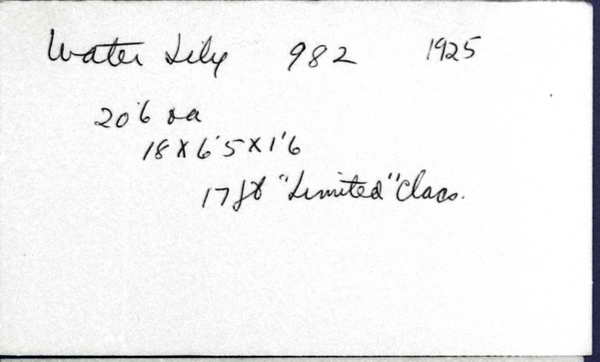 Water Lily 982 1925
20'6 oa
18 x 6'5 x 1'6
17 ft "Limited" Class.